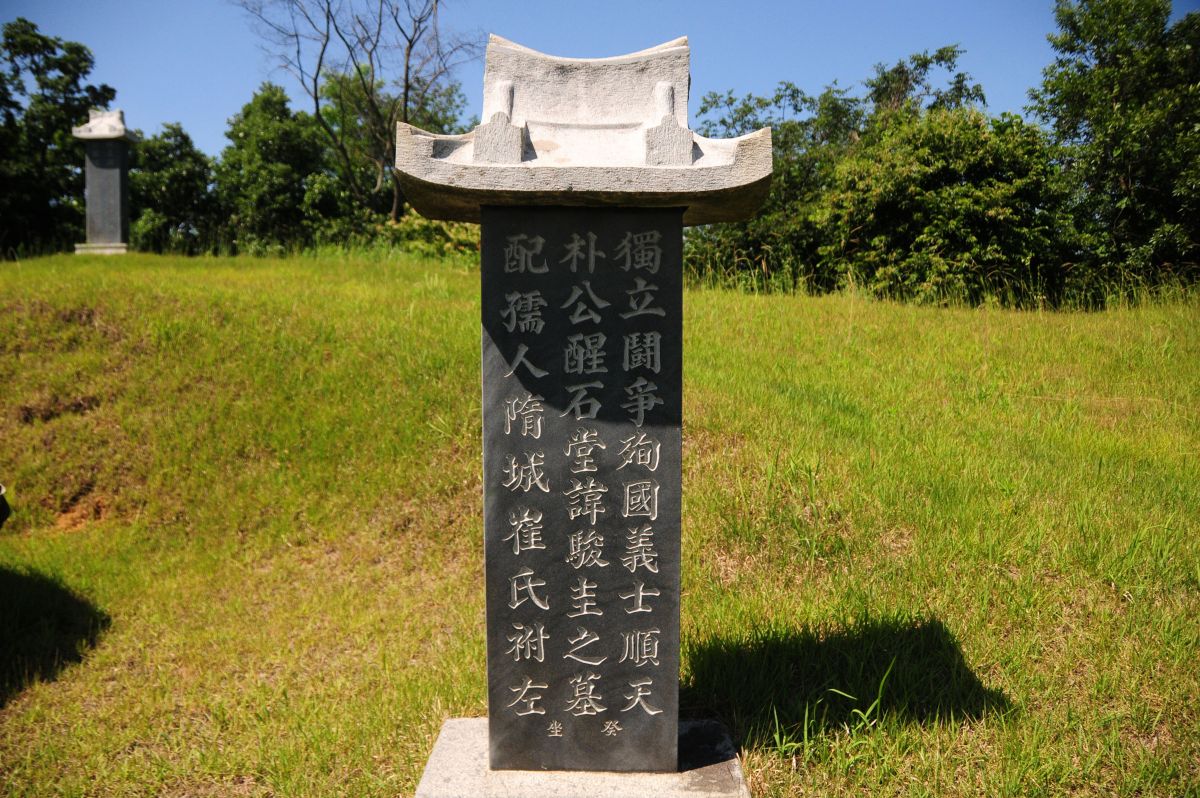 獨立鬪爭殉國義士順天
朴公醒石堂諱駿圭之墓
配孺人隋城崔氏祔左
癸坐